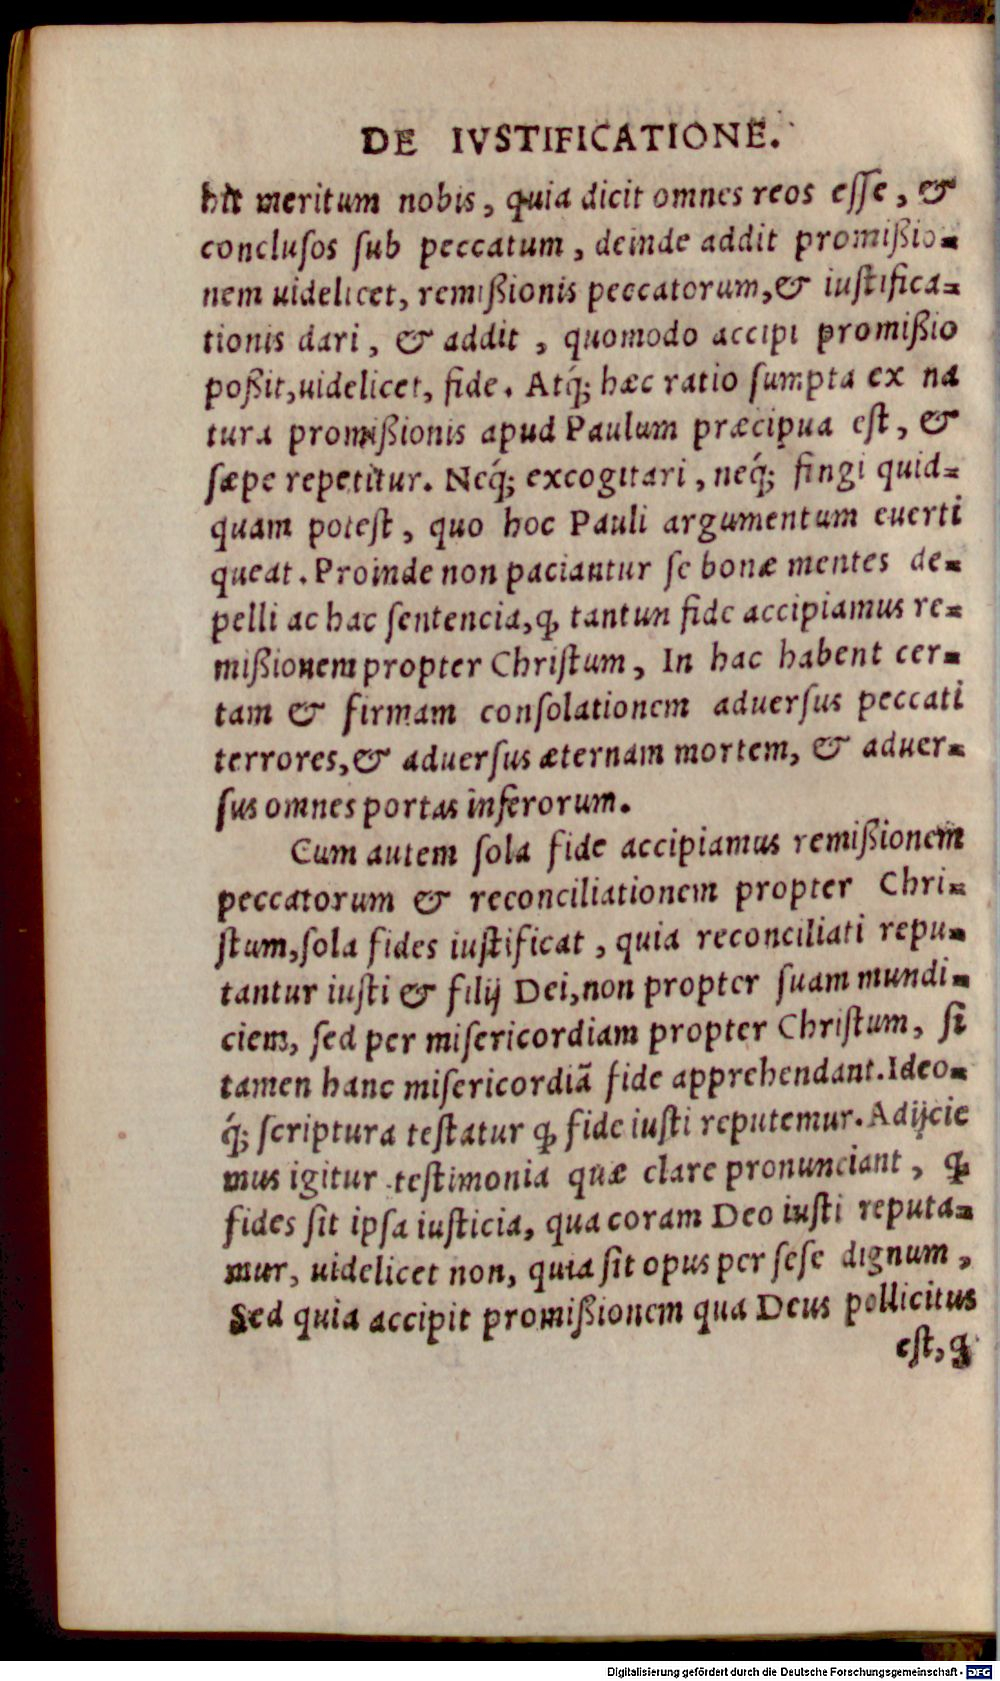 DE IVSTIFICATIONE.
hit meritum nobis, quia dicit omnes reos eſſe, &
concluſos ſub peccatum, deinde addit promißio-
nem uidelicet, remißionis peccatorum,& iuſtifica-
tionis dari, & addit, quomodo accipi promißio
poßit,uidelicet, fide. Atq́; hæc ratio ſumpta ex na
tura promißionis apud Paulum præcipua eſt, &
ſæpe repetitur. Neq́; excogitari, neq́; fingi quid-
quam poteſt, quo hoc Pauli argumentum euerti
queat. Proinde non paciantur ſe bonæ mentes de-
pelli ac hac ſentencia,ꝙ tantun fide accipiamus re-
mißionem propter Chriſtum, In hac habent cer-
tam & firmam conſolationem aduerſus peccati
terrores,& aduerſus æternam mortem, & aduer-
ſus omnes portas inferorum.
Cum autem ſola fide accipiamus remißionem
peccatorum & reconciliationem propter Chri-
ſtum,ſola fides iuſtificat, quia reconciliati repu-
tantur iuſti & filij Dei,non propter ſuam mundi-
ciem, ſed per miſericordiam propter Chriſtum, ſi
tamen hanc miſericordiã fide apprehendant.Ideo-
q́; ſcriptura teſtatur ꝙ fide iuſti reputemur. Adijcie
mus igitur teſtimonia quæ clare pronunciant, ꝙ
fides ſit ipſa iuſticia, qua coram Deo iuſti reputa-
mur, uidelicet non, quia ſit opus per ſeſe dignum,
Sed quia accipit promißionem qua Deus pollicitus
eſt, ꝙ
Digitalisierung gefördert durch die Deutsche Forschungsgemeinschaft - DFG